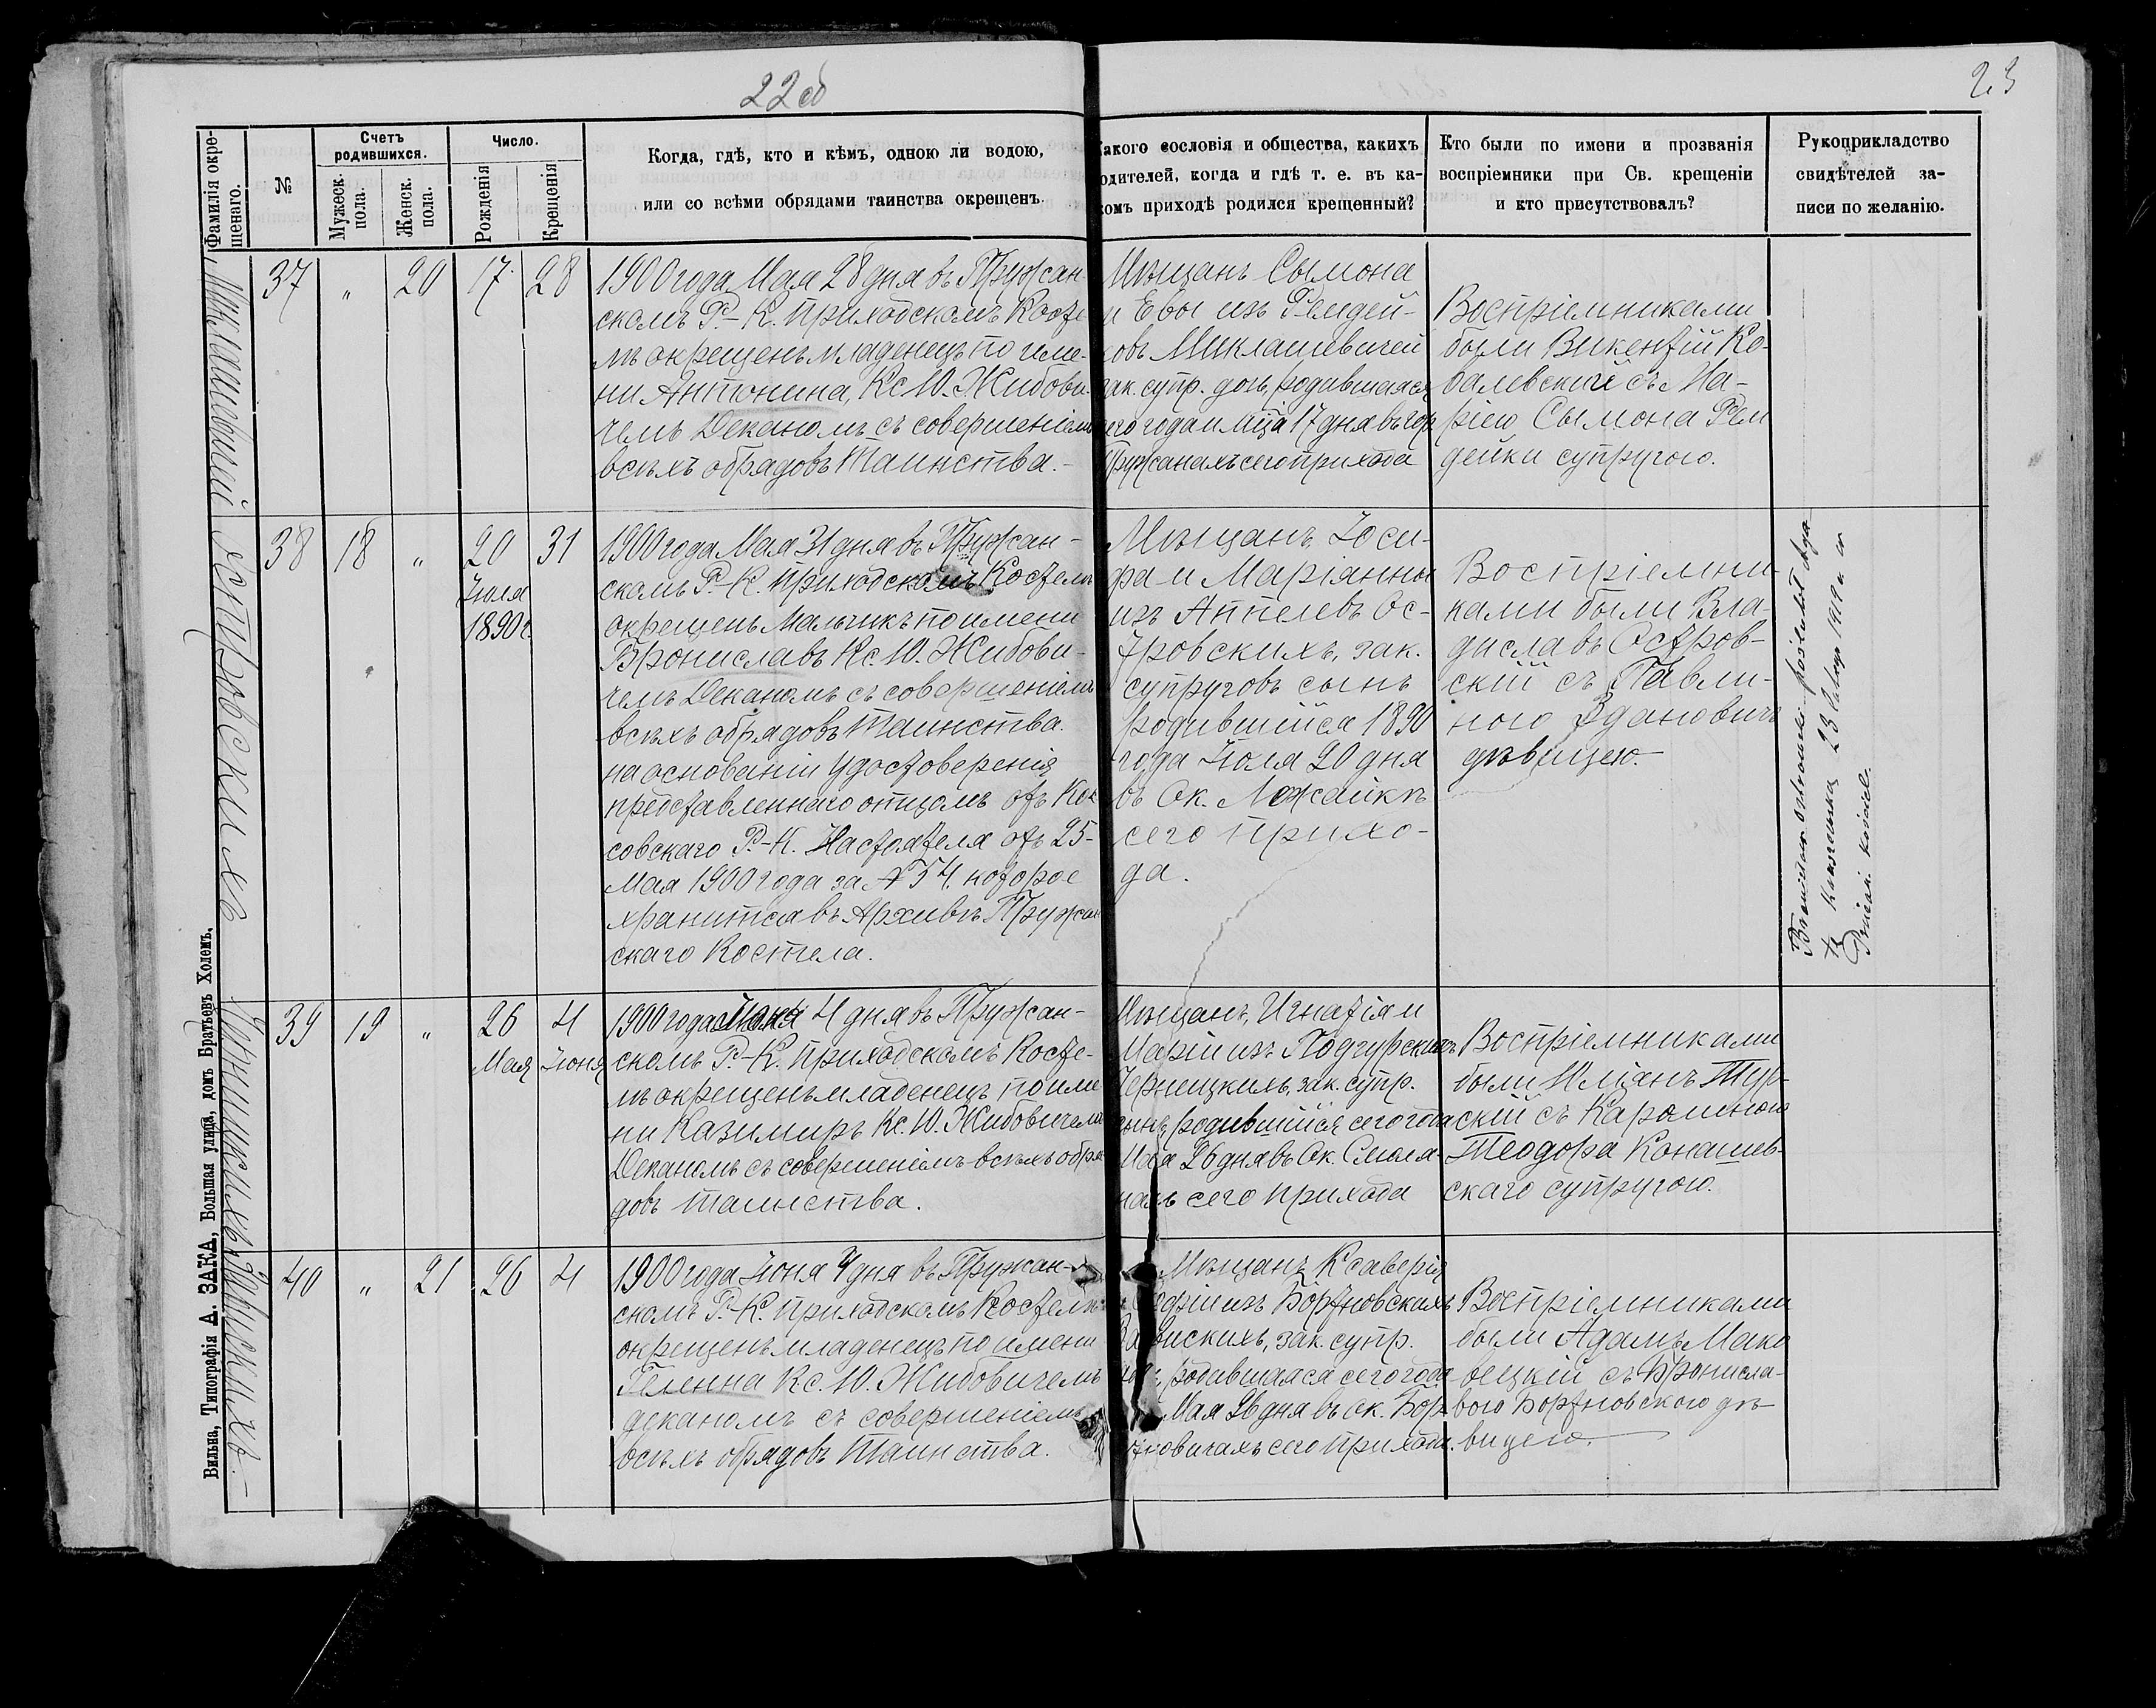 22 об
23
Фамилія окре-
щенаго.
№
Счетъ
родившихся.
Мужеск.
пола.
Женск.
пола.
Число.
Рожденія
Крещенія
Когда, гдѣ, кто и кѣмъ, одною ли водою,
или со всѣми обрядами таинства окрещенъ.
Какого сословія и общества, какихъ
родителей, когда и гдѣ т. е. въ ка-
комъ приходѣ родился крещенный?
Кто были по имени и прозванія
воспріемники при Св. крещеніи
и кто присутствовалъ?
Рукоприкладство
свидѣтелей за-
писи по желанію.
Миклашевичей
37
"
20
17
28
1900 года Мая 28 дня въ Пружан-
скомъ Р.-К. приходскомъ Косте
лѣ окрещенъ младенецъ по име-
ни Антонина, Кс. Ю. Жибови-
чемъ Деканомъ съ совершеніемъ
всѣхъ обрядовъ Таинства.-
Мѣщанъ Сымона
и Евы изъ Ремдей-
ковъ Миклашевичей
зак. супр. дочь, родившаяся
сего года и мѣца 17 дня въ гор
Пружанахъ сего прихода
Воспріемниками
были Викентій Ко-
балевскій съ Ма-
ріею Сымона Рем
дейки супругою.
Островскихъ
38
18
"
20
Іюля
1890 г.
31
1900 года Мая 31 дня въ Пружан-
скомъ Р.-К. приходскомъ Костелѣ
окрещенъ Мальчикъ по имени
Брониславъ Кс. Ю. Жибови-
чемъ Деканомъ съ совершеніемъ
всѣхъ обрядовъ Таинства.
на основаніи Удостоверенія
представленнаго отцомъ отъ Кос
совскаго Р.-К. Настоятеля отъ 25-
Мая 1900 года за № 54. которое
хранится въ Архивѣ Пружан
скаго Костела.
Мѣщанъ Іоси-
фа и Маріянны
изъ Аппелевъ Ос-
тровскихъ, зак.
супруговъ сынъ
родившійся 1890
года Іюля 20 дня
въ Ок. Можейкѣ
сего прихо-
да.
Воспріемни-
ками были Вла-
диславъ Остров-
скій съ Павли-
ною Здановичъ
дѣвицею.-
Bronisław Ostrowski poślubił
23 lutego 1919 r. w
kościele.
Черницкихъ
39
19
"
26
Мая
4
Іюня
1900 года Іюня 4 дня въ Пружан-
скомъ Р.-К. приходскомъ Косте-
лѣ окрещенъ младенецъ по име
ни Казимиръ Кс. Ю. Жибовичемъ
Деканомъ съ совершеніемъ всѣхъ обря
довъ таинства.
Мѣщанъ, Игнатія и
Маріи изъ Подгурскихъ
Черницкихъ, зак. супр.
сынъ, родившійся сего года
Мая 26 дня въ Ок. Смоля
нахъ сего прихода
Воспріемниками
были Юліанъ Тур-
скій съ Каролиною
Теодора Конашев-
скаго супругою.
40
"
21
26
4
1900 года Іюня 4 дня въ Пружан-
скомъ Р.-К. приходскомъ Костелѣ
окрещенъ младенецъ по имени
Геленна Кс. Ю. Жибовичемъ
деканомъ съ совершеніемъ
всѣхъ обрядовъ Таинства.
Мѣщанъ Ксаверія
изъ Бортновскихъ
зак. супр.
родившаяся сего года
Мая 26 дня въ ок. Бор
тновичахъ сего прихода.
Воспріемниками
были Адамъ Мако
вецкій съ Бронисла-
вою Бортновского дѣ-
вицею.
Вильна, Типографія А. ЗАКА, Большая улица, домъ Братьевъ Холемъ.